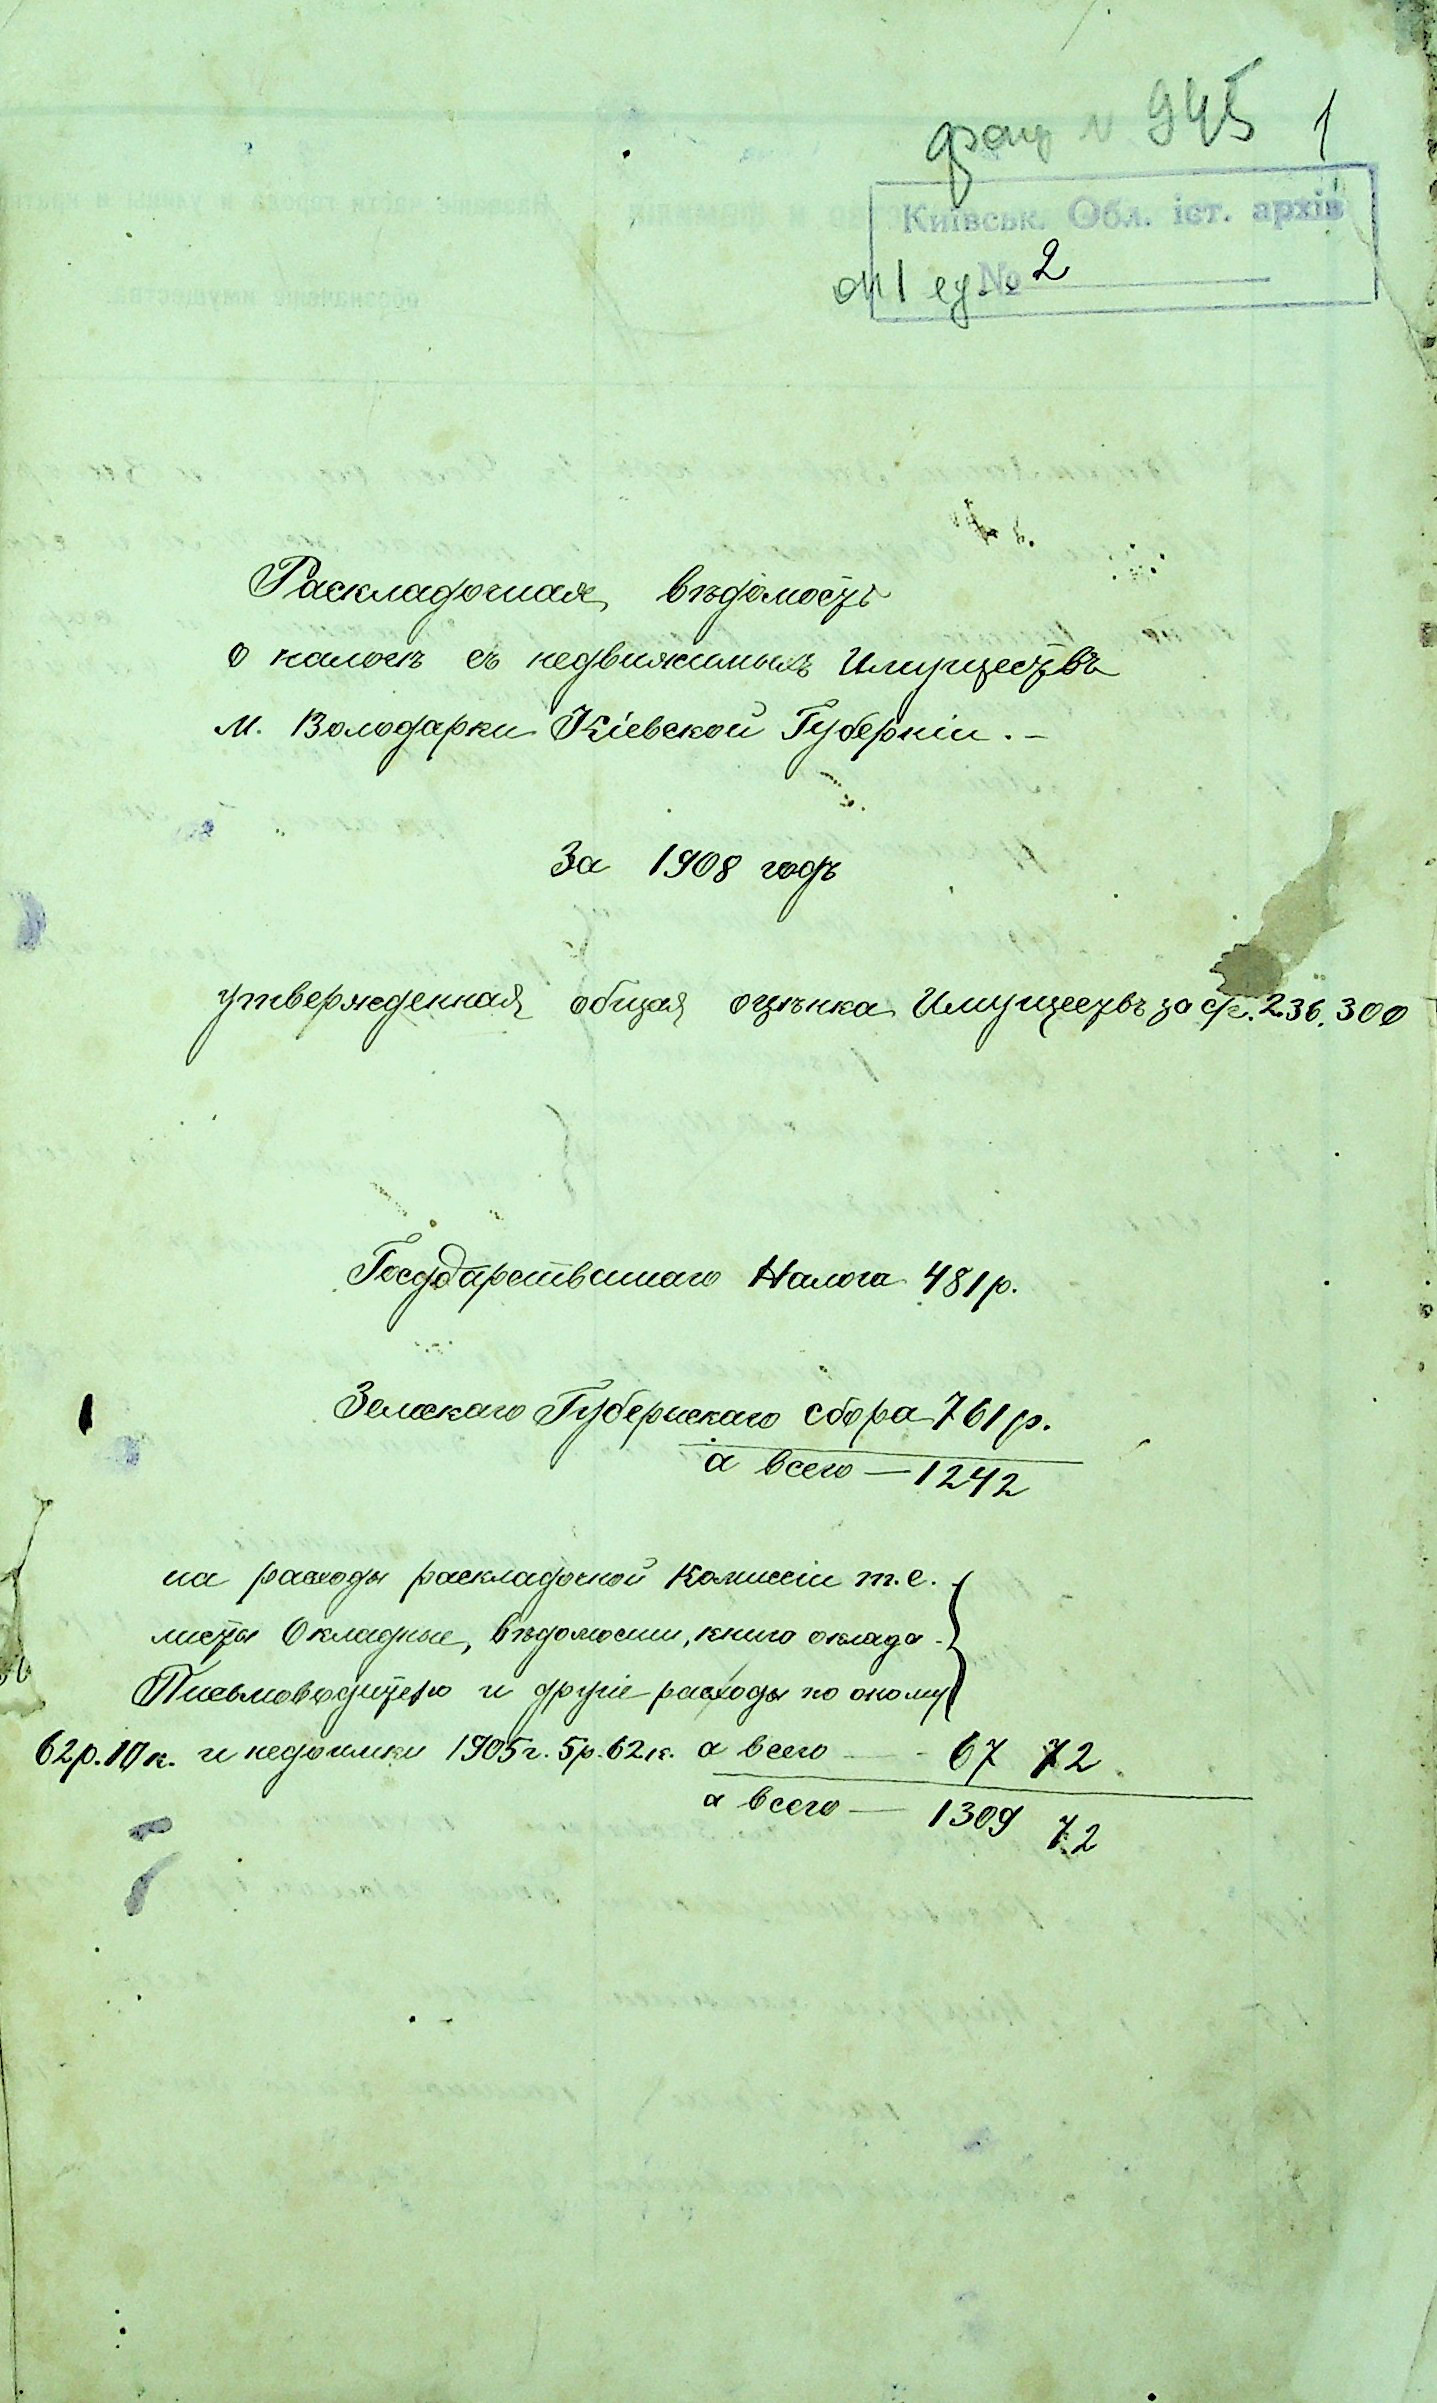 фонд № 945 1
Київськ. Обл. іст. архів
оп 1 ед № 2
Раскладочная вѣдомость
о налогѣ съ недвижимыхъ Имуществъ
м. Володарки Кіевской Губерніи. –
За 1908 годъ
утвержденная общая оцѣнка Имуществъ за ср. 236.300
Государственнаго Налога 481 р.
Земскаго Губернскаго сбора 761 р.
а всего — 1242
на расходы раскладочной Комиссіи т.е.
листы Окладные, вѣдомости, книго оклада
Письмоводителю и другіе расходы по оному
62 р. 10 к. и недоимки 1905 г. 5 р. 62 к. а всего — 67 72
а всего — 1309 72